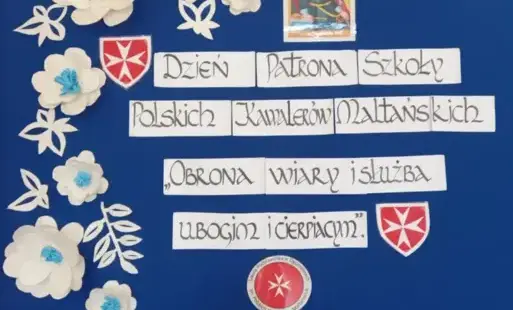 Dzień Patrona Szkoły
Polskich Kawalerów Maltańskich
„Obrona wiary i służba
ubogim i cierpiącym."